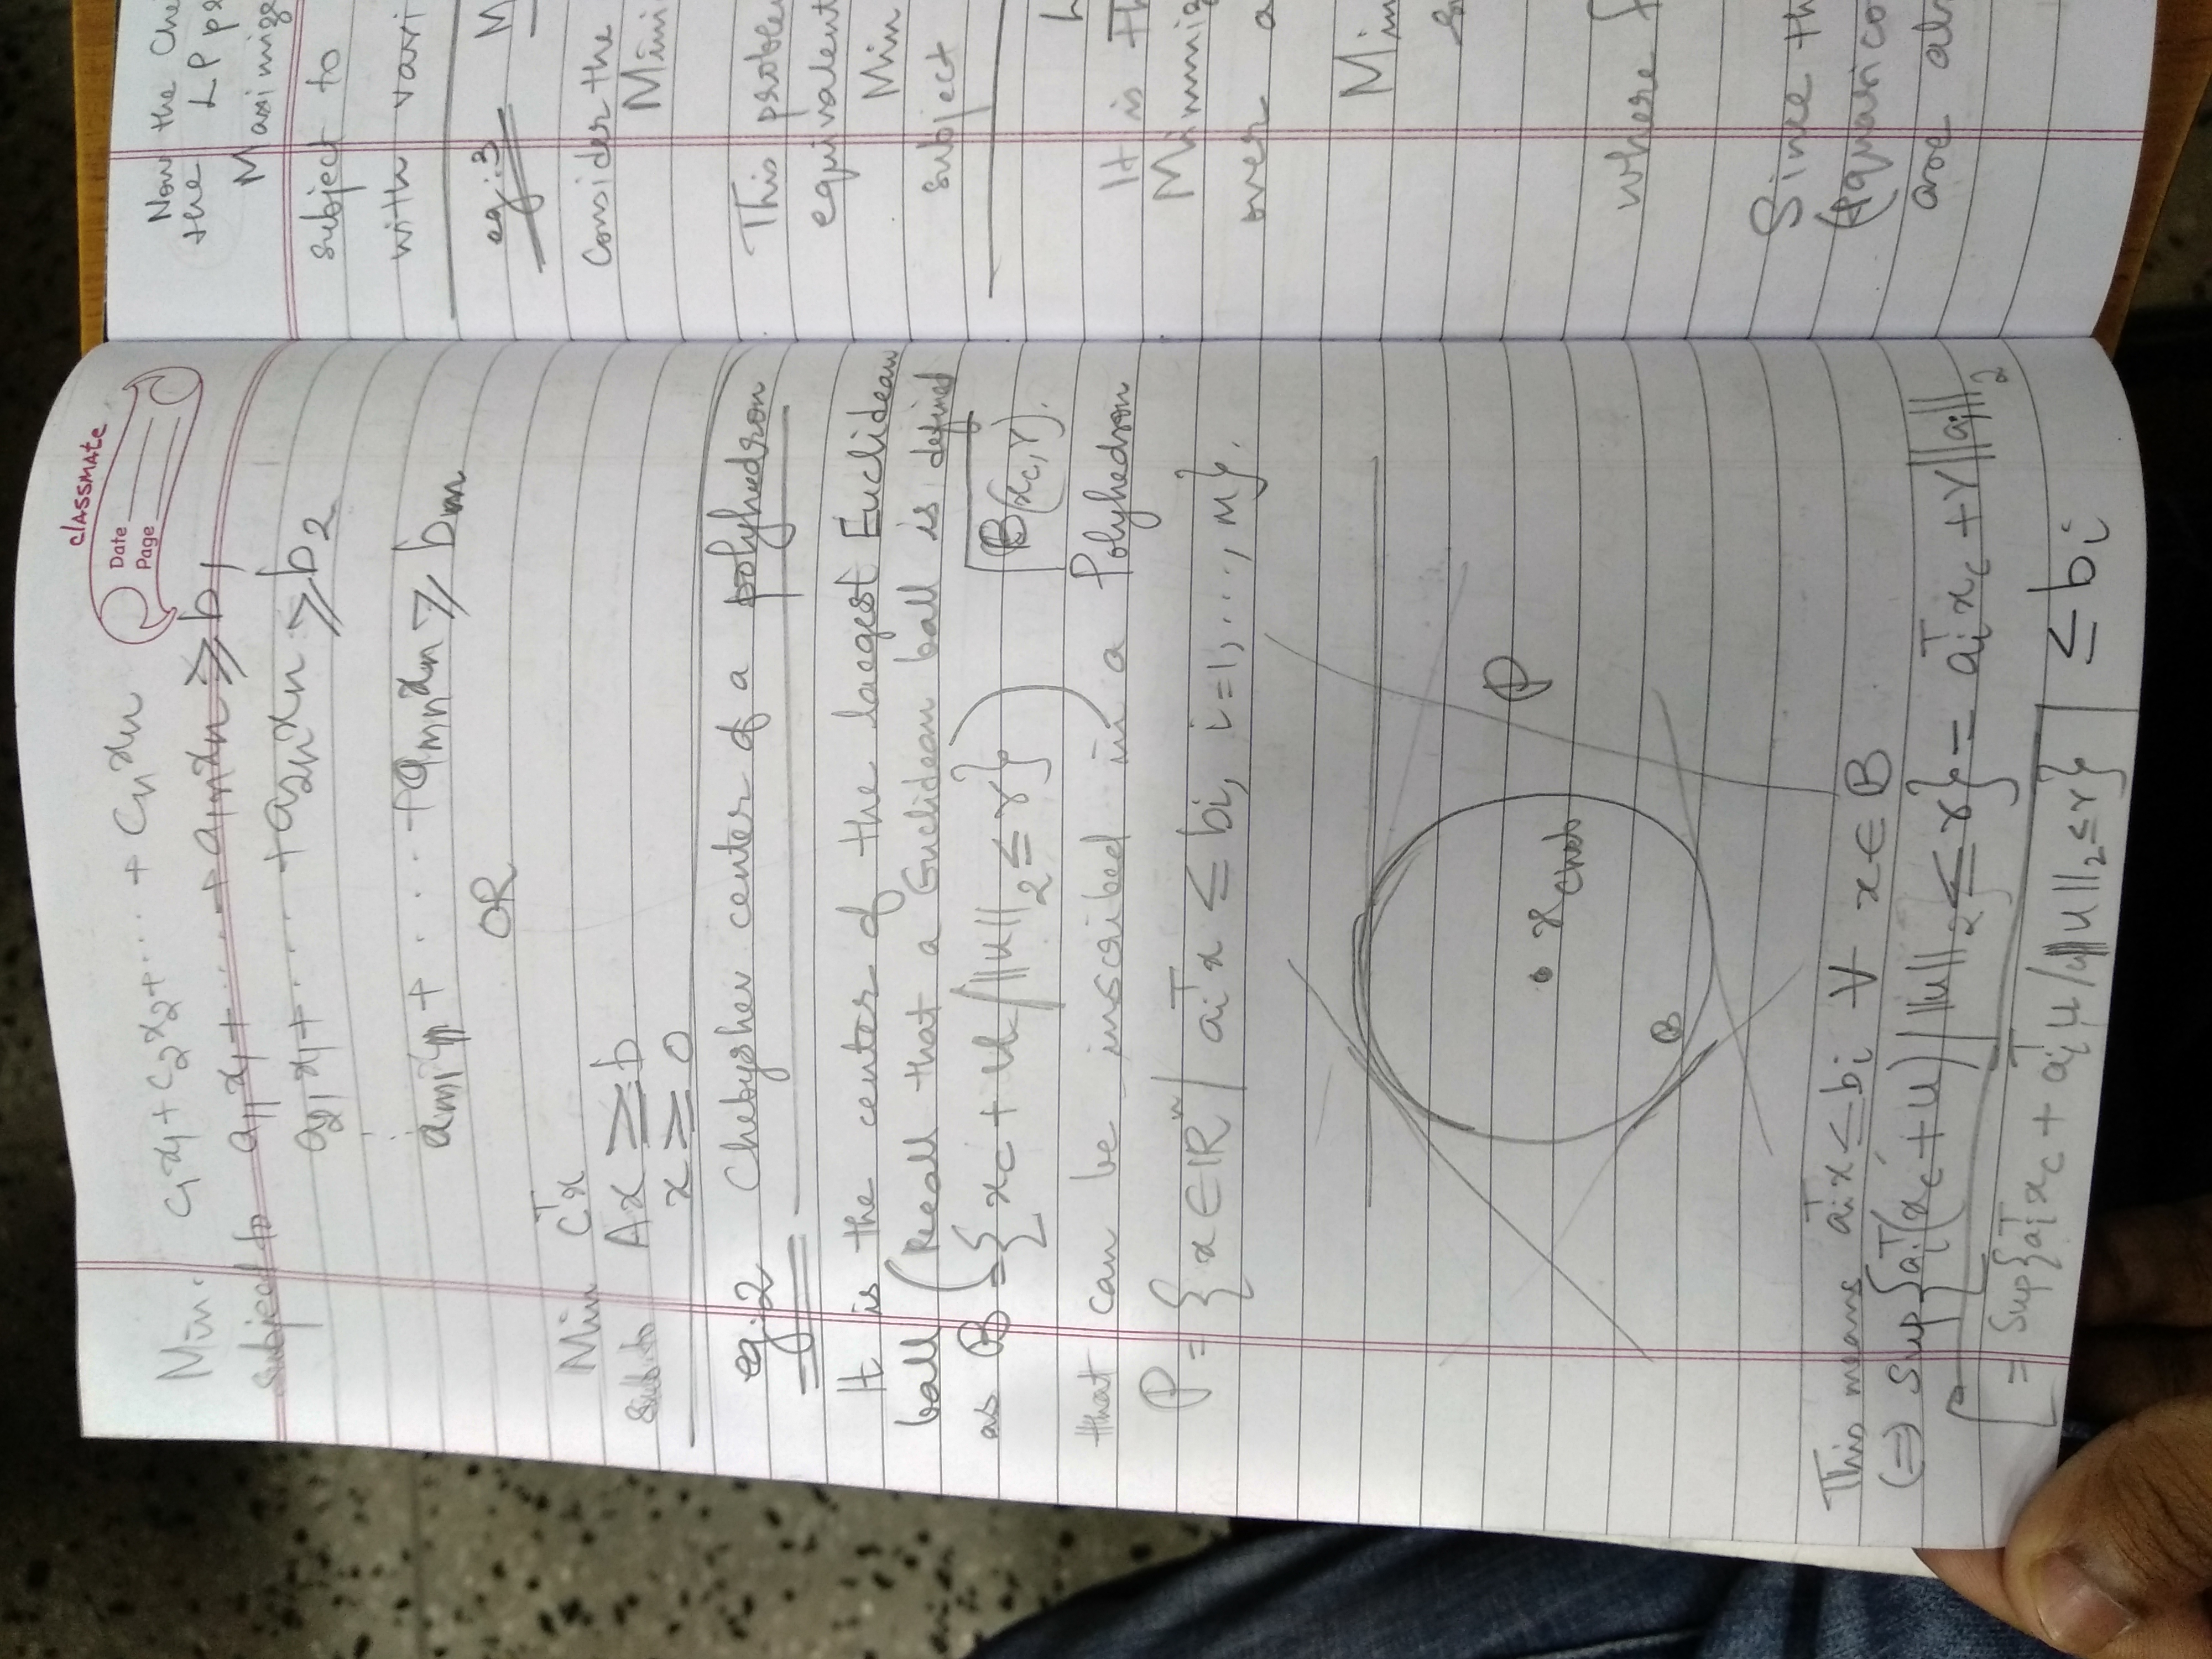 classmate
Date
Page
Min. c₁x₁ + c₂x₂ + ... + cₙxₙ
subject to a₁₁x₁ + ... + a₁ₙxₙ ≥ b₁
a₂₁x₁ + ... + a₂ₙxₙ ≥ b₂
⋮
aₘ₁x₁ + ... + aₘₙxₙ ≥ bₘ
OR
Min cᵀx
sub. to Ax ≥ b
x ≥ 0
eg:2 Chebyshev center of a polyhedron
It is the center of the largest Euclidean
ball (Recall that a Euclidean ball is defined
as B = {x_c + u / ||u||₂ ≤ r}) B(x_c, r).
that can be inscribed in a Polyhedron
P = {x ∈ ℝⁿ / aᵢᵀx ≤ bᵢ, i=1, ..., m}.
P
x_Cheb
B
This means aᵢᵀx ≤ bᵢ ∀ x ∈ B
(⇒) Sup{aᵢᵀ(x_c + u) / ||u||₂ ≤ r} = aᵢᵀx_c + r||aᵢ||₂
[= Sup{aᵢᵀx_c + aᵢᵀu / ||u||₂ ≤ r} ≤ bᵢ
Now the Che
the LP pr
Maximize
subject to
with vari
eg:3 M
Consider the
Mini
This proble
equivalent
Min
subject
L
It is th
Minimiz
over a
Min
s
where f
Since th
(quasico
are al